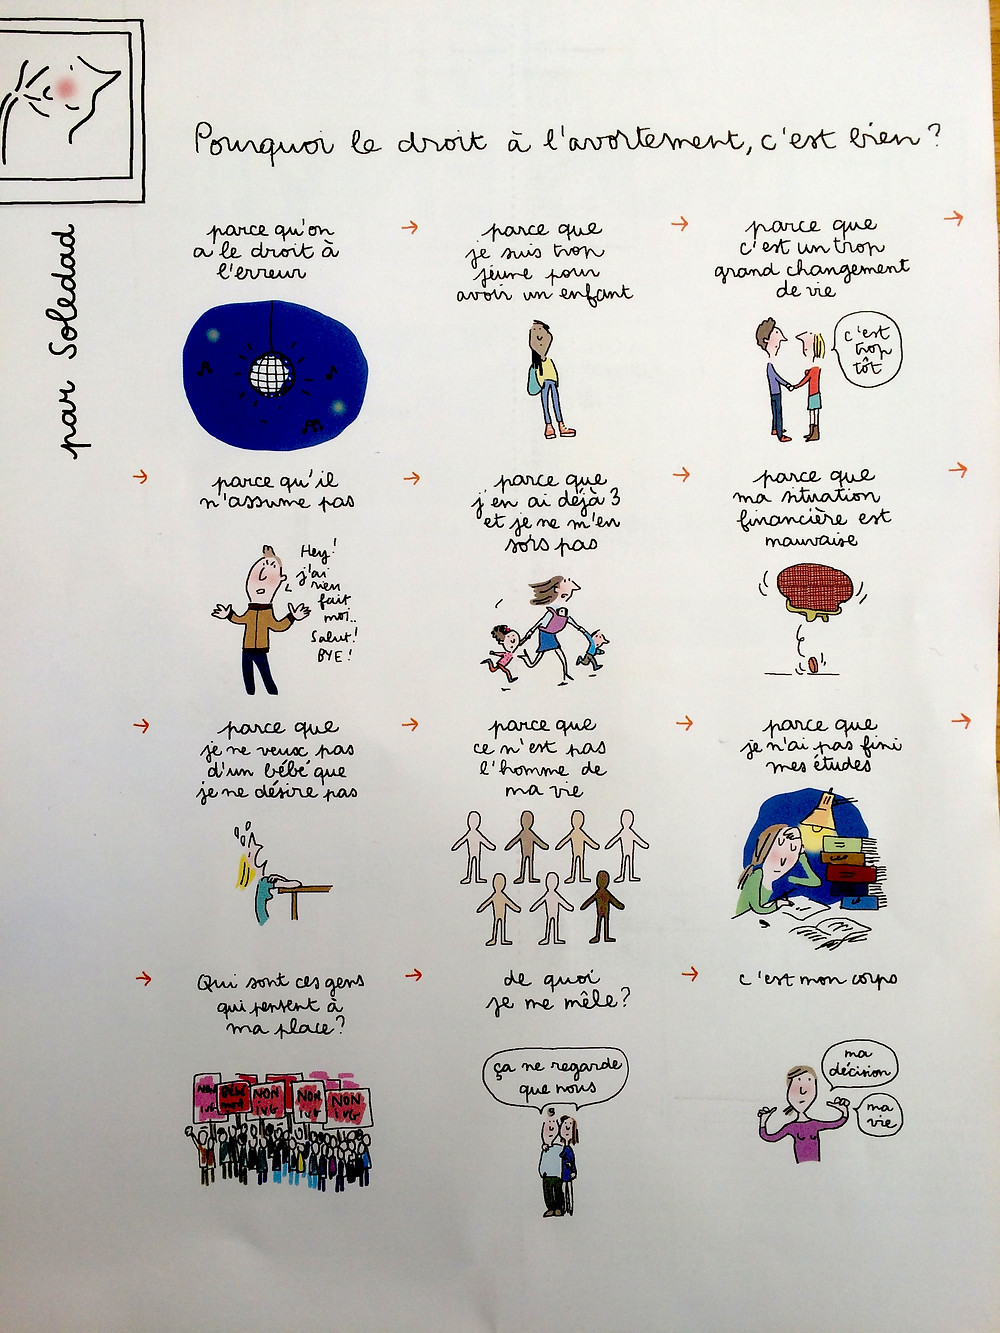 Pourquoi le droit à l'avortement, c'est bien ?
par Soledad
parce qu'on
a le droit à
l'erreur
parce que
je suis trop
jeune pour
avoir un enfant
parce que
c'est un trop
grand changement
de vie
c'est
trop
tôt
parce qu'il
n'assume pas
Hey!
j'ai
rien
fait
moi..
Salut!
BYE!
parce que
j'en ai déjà 3
et je ne m'en
sors pas
parce que
ma situation
financière est
mauvaise
parce que
je ne veux pas
d'un bébé que
je ne désire pas
parce que
ce n'est pas
l'homme de
ma vie
parce que
je n'ai pas fini
mes études
Qui sont ces gens
qui pensent à
ma place?
NON
ivg
NON
ivg
NON
ivg
de quoi
je me mêle?
ça ne regarde
que nous
c'est mon corps
ma
décision
ma
vie